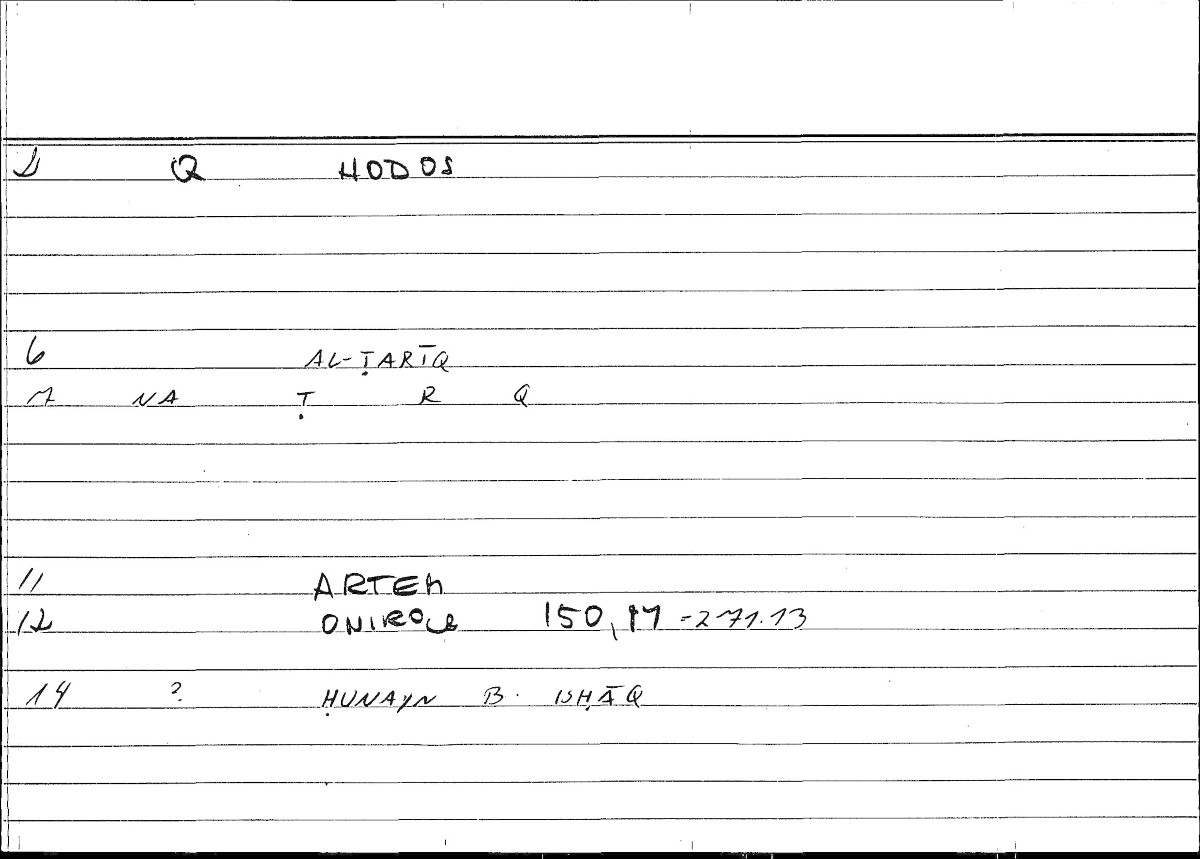 1 Q HODOS
6 AL-ṬARĪQ
7 NA Ṭ R Q
11 ARTEM
12 ONIROCR 150,11 -271.13
14 ? ḤUNAYN B. ISḤĀQ